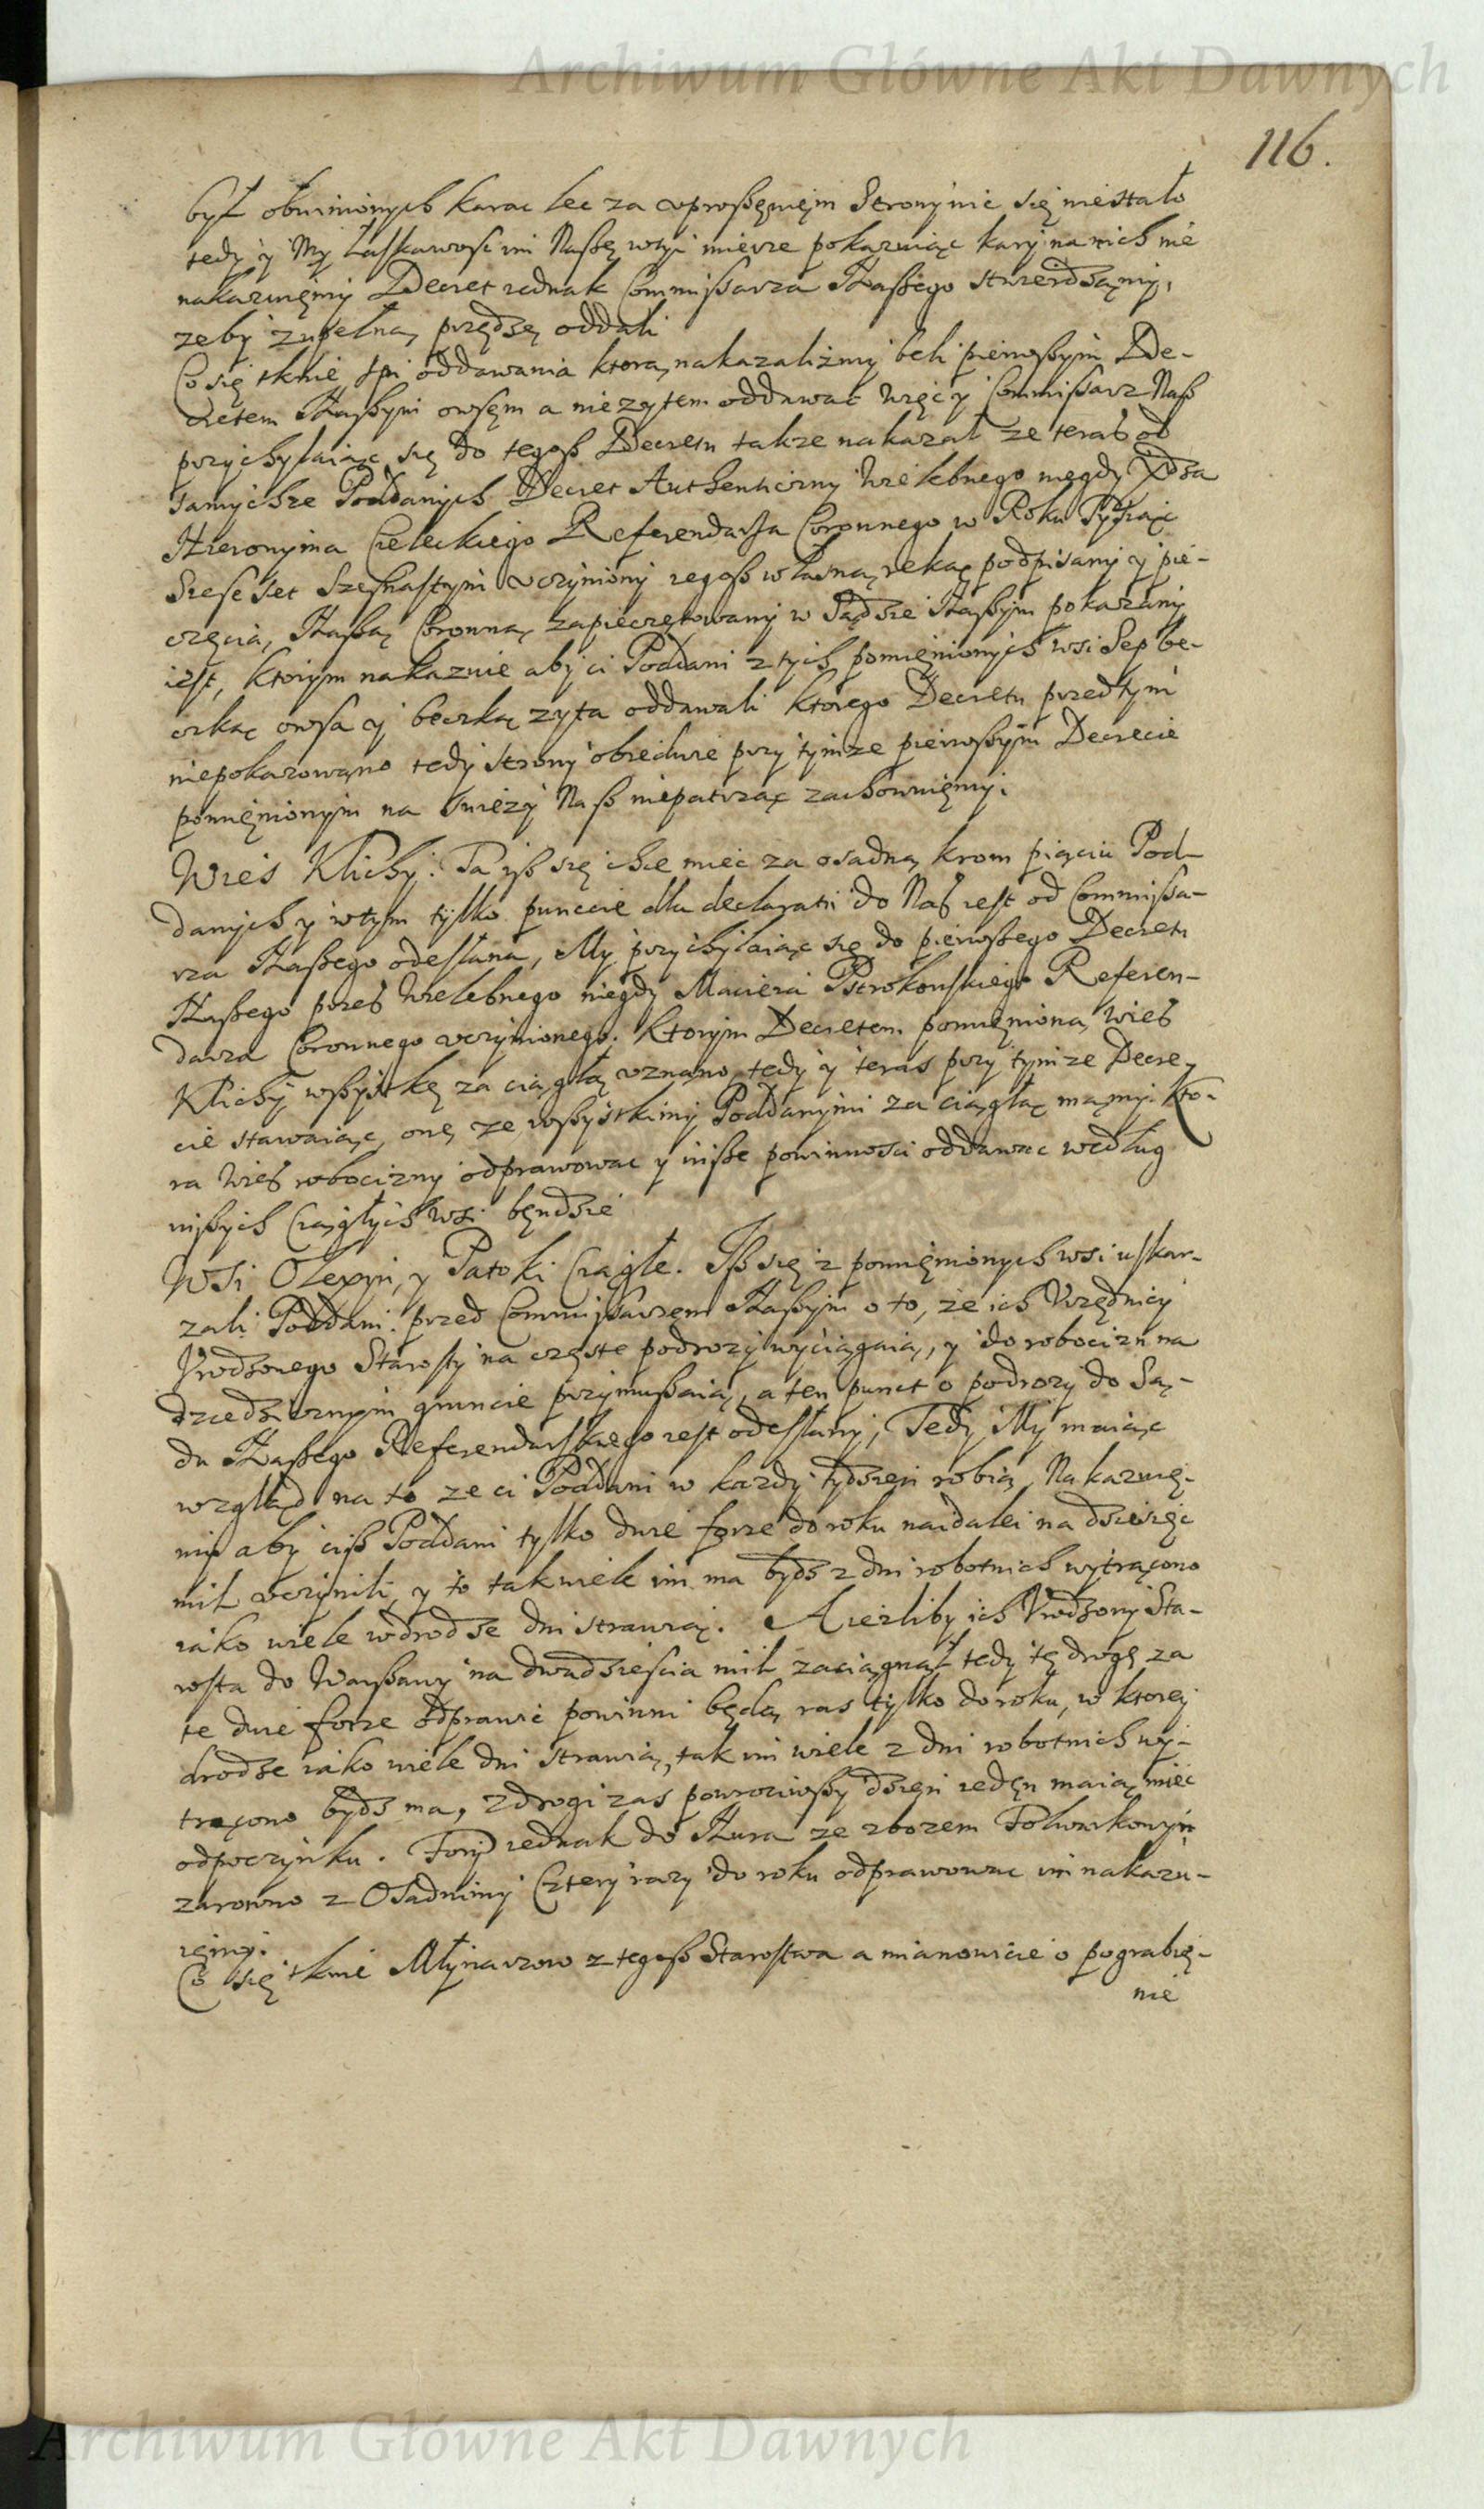 Archiwum Główne Akt Dawnych
116.
był obwinionych karac lec za uproszęnięm Strony nic się niestało
tedy y My łaskawosc im Naszę w tyi mierze pokazuiąc kary na nich nie
nakazuięmy Decret iednak Commissarza Naszego stwierdząmy,
zeby zupełną przędzę oddali
Co się tknie spi oddawania ktorą nakazalizmy beli pierwszym De-
cretem Naszym owsęm a nie zytem oddawac więc y Commissarz Nasz
przychylaiąc się do tegosz Decretu takze nakazał ze teras od
samychze Poddanych Decret Authenticzny Wielebnego niegdy Xdza
Hieronyma Cieleckiego Referendarza Coronnego w Roku Tysiąc
Szescset Szesnastym uczyniony tegosz własną ręką podpisany y pie-
częcią Naszą Coronną zapieczętowany w Sądzie Naszym pokazany
iest, ktorym nakazuie aby ci Poddani z tych pomięnionych wsi Sep be-
czką owsa y beczką zyta oddawali ktorego Decretu przedtym
niepokazowano tedy strony obiedwie przy tymze pierwszym Decrecie
pomięnionym na swiezy Nasz niepatrząc zachowuięmy.
Wies Klichy. Ta isz się chce miec za osadną krom pięciu Pod-
danych y w tym tylko punccie dla declaratii do Nas iest od Commissa-
rza Naszego odesłana, My przychylaiąc się do pierwszego Decretu
Naszego przes Wielebnego niegdy Macieia Pstrokonskiego Referen-
darza Coronnego uczynionego, ktorym Decretem pomięnioną wies
Klichy wszystkę za ciągłą uznano, tedy y teras przy tymze Decre-
cie stawaiąc, onę ze wszystkimy Poddanymi za ciągłą mamy. Kto-
ra wies robocizny odprawowac y insze powinnosci oddawac według
inszych Ciągłych wsi będzie
Wsi Olexyn, y Patoki Ciągłe. Isz się z pomięnionych wsi uskar-
zali Poddani przed Commissarzem Naszym o to, ze ich Urzędnicy
Urodzonego Starosty na częste podrozy wyciągaią, y do robocizn na
dziedzicznym gruncie przymuszaią, a ten punct o podrozy do Są-
du Naszego Referendarskiego iest odesłany, Tedy My maiąc
wzgląd na to ze ci Poddani w kazdy tydzień robią, Nakazuię-
my aby cisz Poddani tylko dwie forze do roku naidalei na dziesięc
mil uczynili, y to tak wiele im ma bydz z dni robotnich wytrącono
iako wiele w drodze dni strawią. A iezliby ich Urodzony Sta-
rosta do Warszawy na dwadziescia mil zaciągnął tedy tę drogę za
te dwie forze odprawic powinni będą ras tylko do roku, w ktorey
drodze iako wiele dni strawią, tak im wiele z dni robotnich wy-
trącono bydz ma, z drogi zas powrociwszy dzięn ieden maią miec
odpoczynku. Fory iednak do Nura ze zbozem Folwarkowym
zarowno z Osadnimy Cztery razy do roku odprawowac im nakazu-
ięmy.
Co się tknie Młynarzow z tegosz Starostwa a mianowicie o pograbię-
nie
Archiwum Główne Akt Dawnych